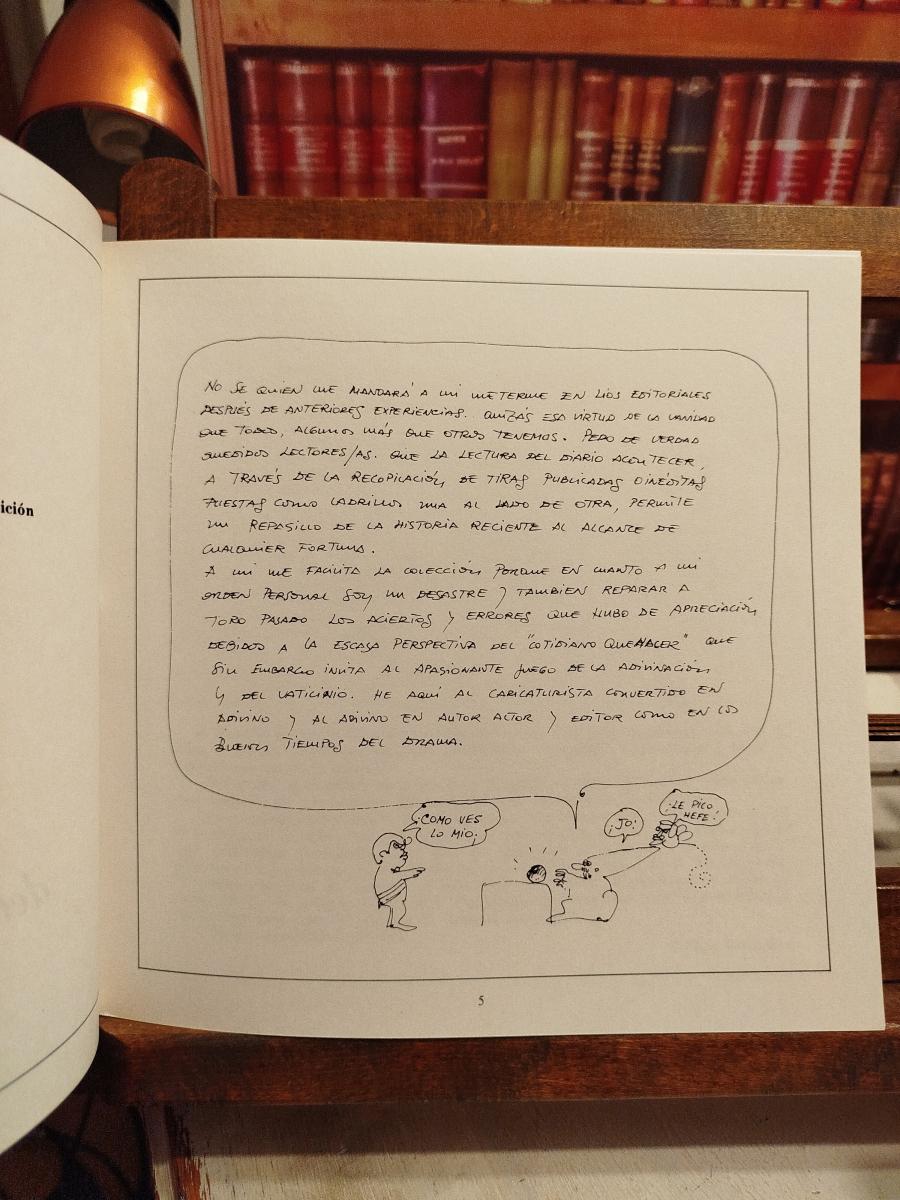 ición
NO SE QUIEN ME MANDARÁ A MI METERME EN LIOS EDITORIALES
DESPUÉS DE ANTERIORES EXPERIENCIAS. QUIZÁS ESA VIRTUD DE LA VANIDAD
QUE TODOS, ALGUNOS MÁS QUE OTROS TENEMOS. PERO DE VERDAD
QUERIDOS LECTORES/AS. QUE LA LECTURA DEL DIARIO ACONTECER,
A TRAVÉS DE LA RECOPILACIÓN DE TIRAS PUBLICADAS O INÉDITAS
PUESTAS COMO LADRILLOS UNA AL LADO DE OTRA, PERMITE
UN REPASILLO DE LA HISTORIA RECIENTE AL ALCANCE DE
CUALQUIER FORTUNA.
A MI ME FACILITA LA COLECCIÓN PORQUE EN CUANTO A MI
ORDEN PERSONAL SOY UN DESASTRE Y TAMBIEN REPARAR A
TORO PASADO LOS ACIERTOS Y ERRORES QUE HUBO DE APRECIACIÓN
DEBIDOS A LA ESCASA PERSPECTIVA DEL "COTIDIANO QUEHACER" QUE
SIN EMBARGO INVITA AL APASIONANTE JUEGO DE LA ADIVINACIÓN
Y DEL VATICINIO. HE AQUÍ AL CARICATURISTA CONVERTIDO EN
ADIVINO Y AL ADIVINO EN AUTOR ACTOR Y EDITOR COMO EN LOS
BUENOS TIEMPOS DEL DRAMA.
¿COMO VES
LO MIO?
¡JO!
¿LE PICO
HEFE?
5